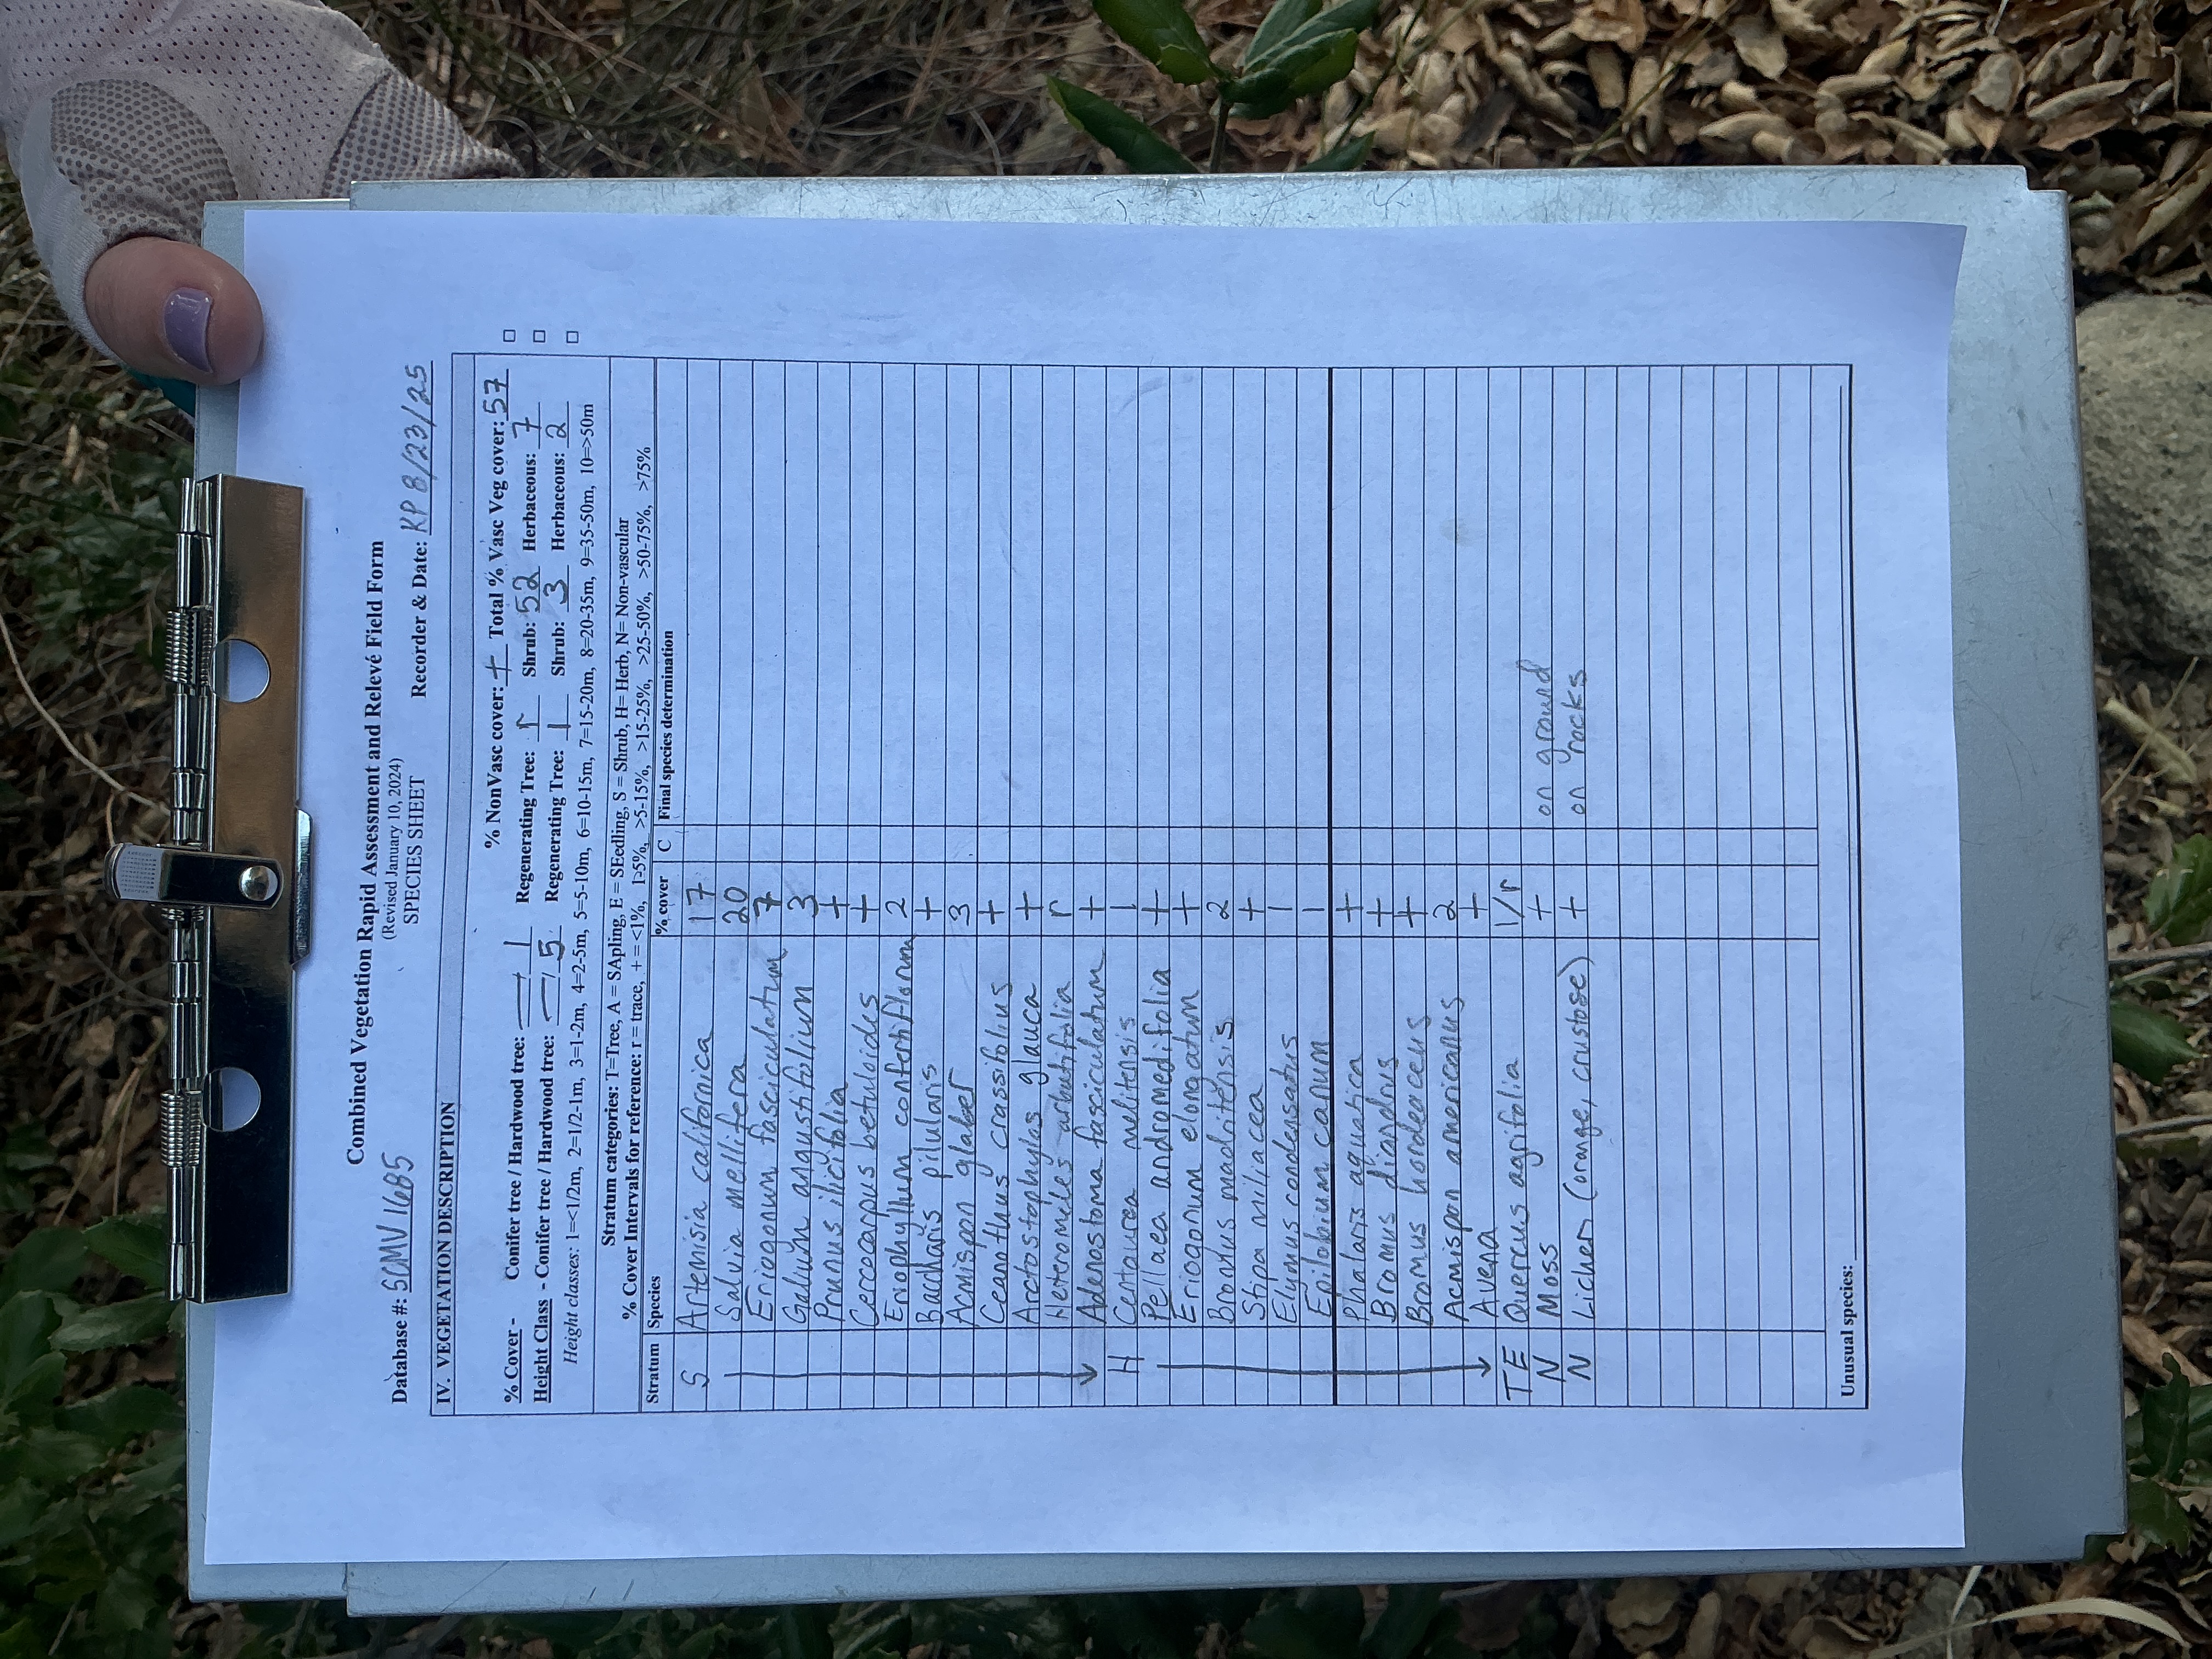 Combined Vegetation Rapid Assessment and Relevé Field Form
(Revised January 10, 2024)
SPECIES SHEET
Database #: SCMV1685 Recorder & Date: KP 8/23/25
IV. VEGETATION DESCRIPTION
% NonVasc cover: + Total % Vasc Veg cover: 57
% Cover - Conifer tree / Hardwood tree: — / 1 Regenerating Tree: r Shrub: 52 Herbaceous: 7 □
Height Class - Conifer tree / Hardwood tree: — / 5 Regenerating Tree: 1 Shrub: 3 Herbaceous: 2 □
Height classes: 1=<1/2m, 2=1/2-1m, 3=1-2m, 4=2-5m, 5=5-10m, 6=10-15m, 7=15-20m, 8=20-35m, 9=35-50m, 10=>50m □
Stratum categories: T=Tree, A = SApling, E = SEedling, S = Shrub, H= Herb, N= Non-vascular
% Cover Intervals for reference: r = trace, + = <1%, 1-5%, >5-15%, >15-25%, >25-50%, >50-75%, >75%
Stratum Species % cover C Final species determination
S Artemisia californica 17
Salvia mellifera 20
Eriogonum fasciculatum 7
Galium angustifolium 3
Prunus ilicifolia +
Cercocarpus betuloides +
Eriophyllum confertiflorum 2
Baccharis pilularis +
Acmispon glaber 3
Ceanothus crassifolius +
Arctostaphylos glauca +
Heteromeles arbutifolia r
Adenostoma fasciculatum +
H Centaurea melitensis 1
Pellaea andromedifolia +
Eriogonum elongatum +
Bromus madritensis 2
Stipa miliacea +
Elymus condensatus 1
Epilobium canum 1
Phalaris aquatica +
Bromus diandrus +
Bromus hordeaceus +
Acmispon americanus 2
Avena +
TE Quercus agrifolia 1/r
N Moss + on ground
N Lichen (orange, crustose) + on rocks
Unusual species: